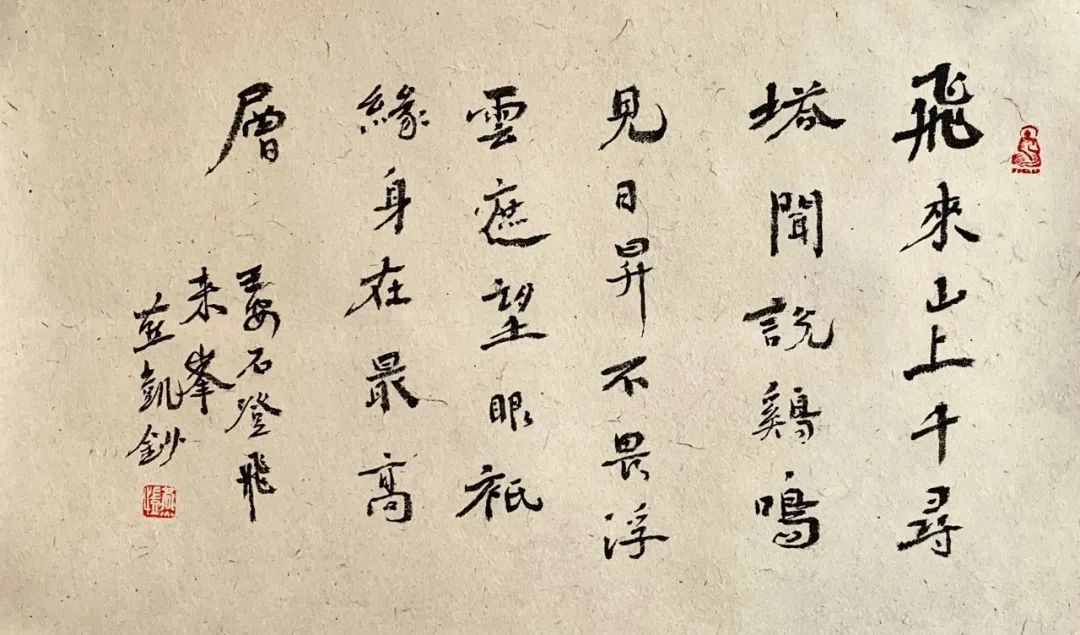 飛來山上千尋
塔聞説鷄鳴
見日昇不畏浮
雲遮望眼祗
緣身在最高
層
王安石登飛
来峯
燕凱鈔